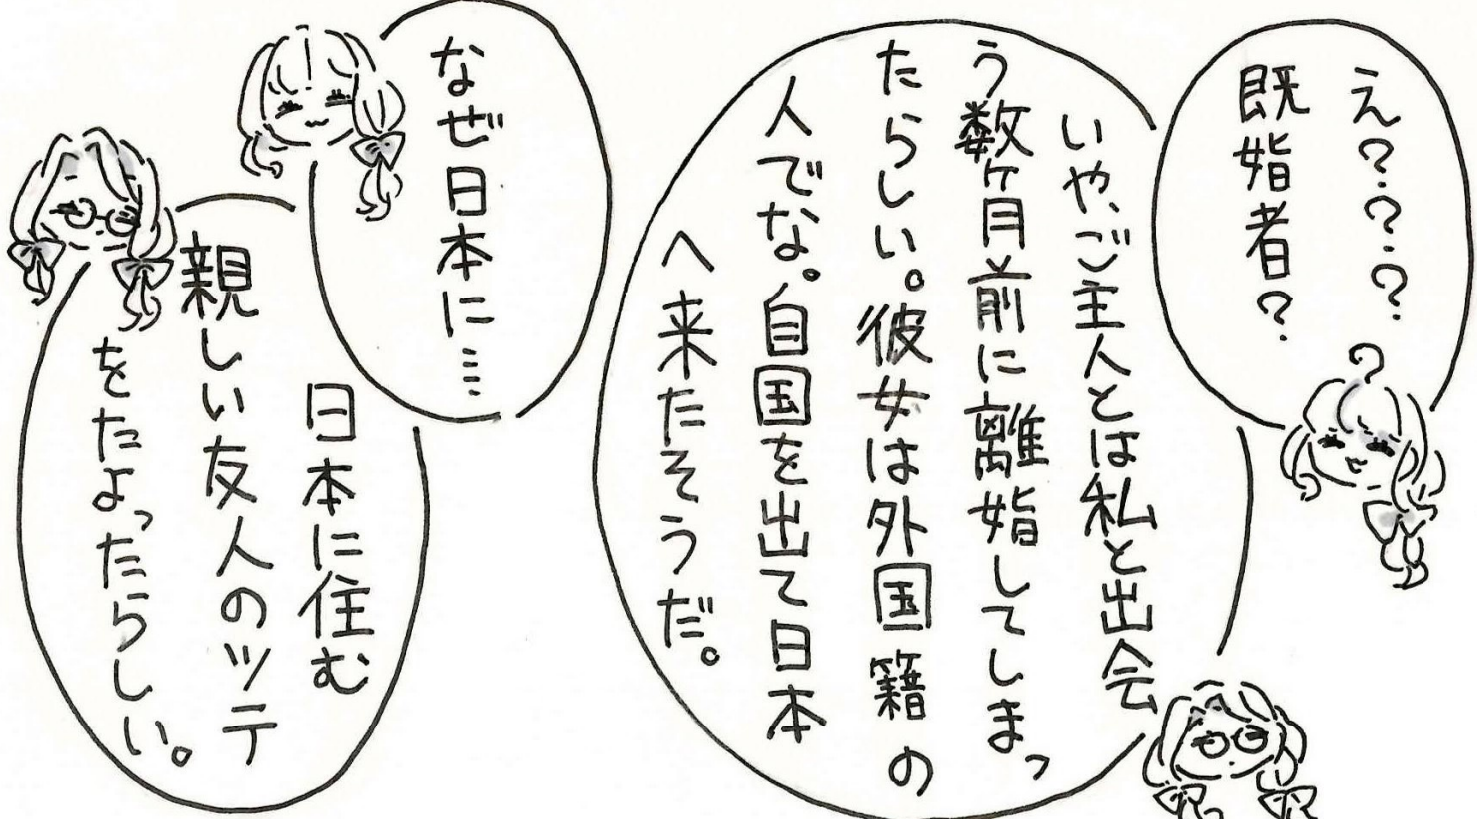 え????
既婚者?
いや、ご主人とは私と出会
う数ヶ月前に離婚してしまっ
たらしい。彼女は外国籍の
人でな。自国を出て日本
へ来たそうだ。
なぜ日本に…
日本に住む
親しい友人のツテ
をたよったらしい。